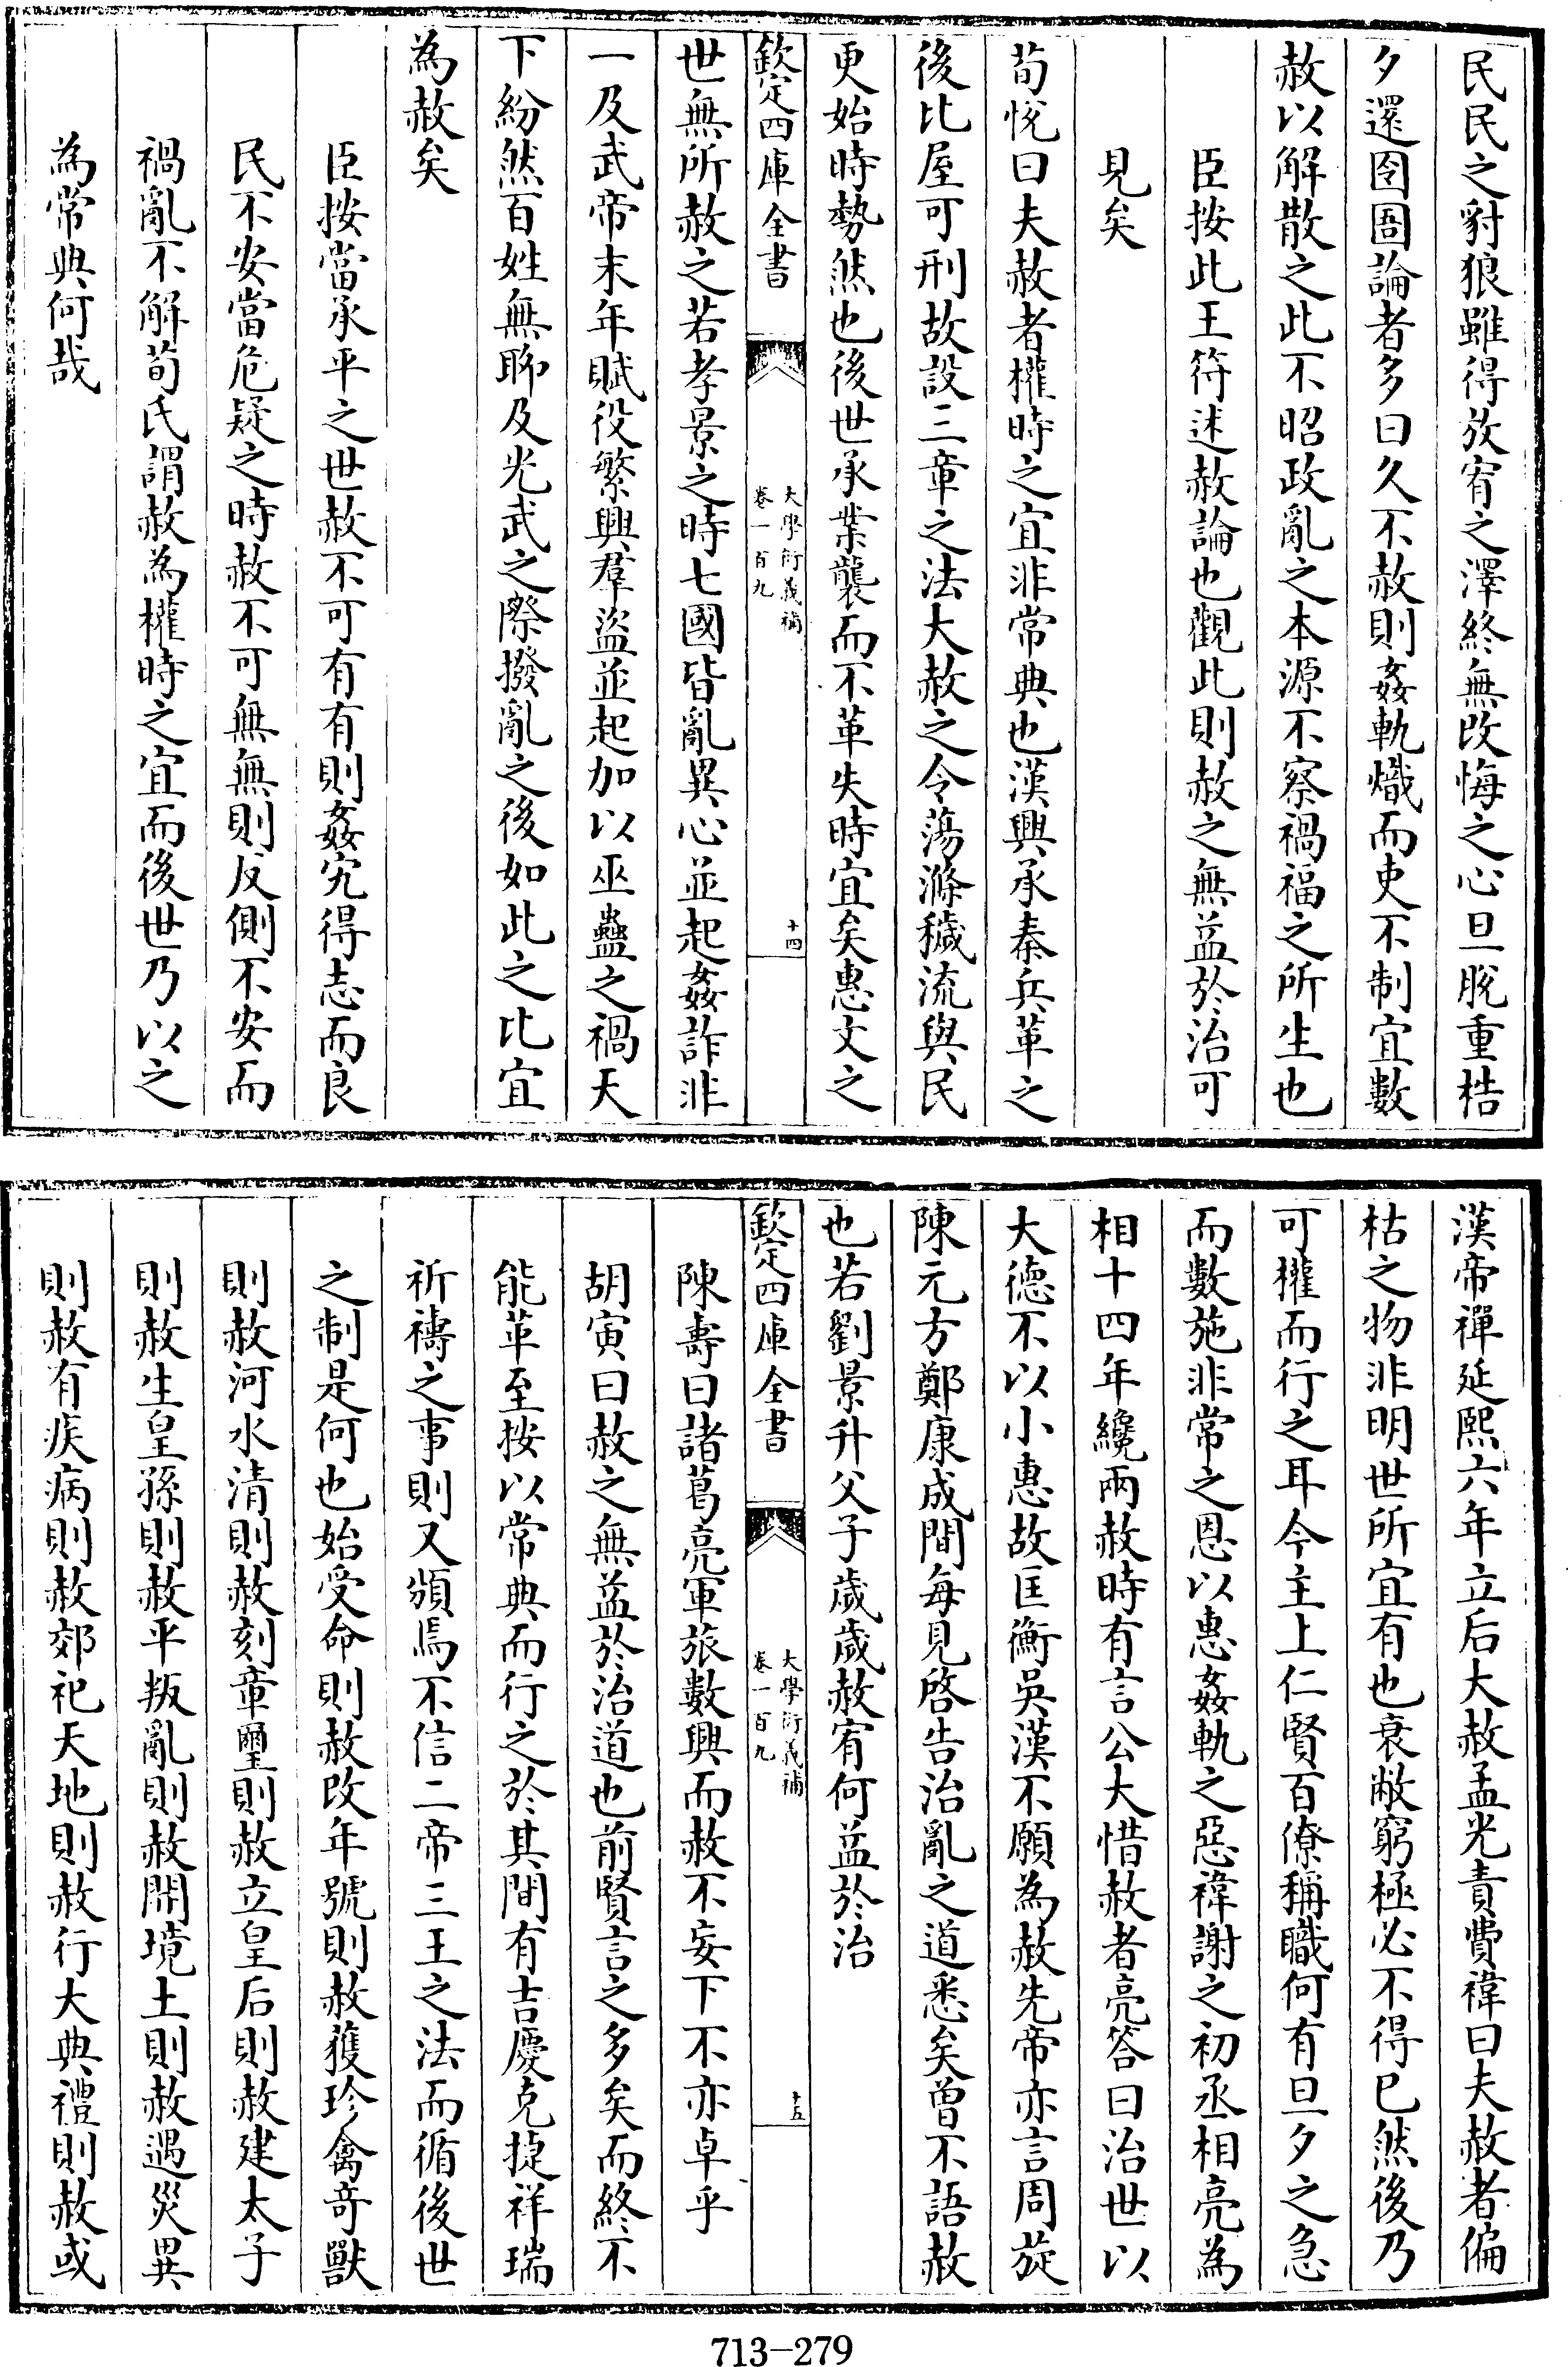 民民之豺狼雖得放宥之澤終無改悔之心旦脫重梏
夕還囹圄論者多曰久不赦則姦軌熾而吏不制宜數
赦以解散之此不昭政亂之本源不察禍福之所生也
臣按此王符述赦論也觀此則赦之無益於治可
見矣
荀悅曰夫赦者權時之宜非常典也漢興承秦兵革之
後比屋可刑故設三章之法大赦之令蕩滌穢流與民
更始時勢然也後世承業襲而不革失時宜矣惠文之
欽定四庫全書
大學衍義補
卷一百九
十四
世無所赦之若孝景之時七國皆亂異心並起姦詐非
一及武帝末年賦役繁興羣盜並起加以巫蠱之禍天
下紛然百姓無聊及光武之際撥亂之後如此之比宜
為赦矣
臣按當承平之世赦不可有有則姦宄得志而良
民不安當危疑之時赦不可無無則反側不安而
禍亂不解荀氏謂赦為權時之宜而後世乃以之
為常典何哉
漢帝禪延熙六年立后大赦孟光責費禕曰夫赦者偏
枯之物非明世所宜有也衰敝窮極必不得已然後乃
可權而行之耳今主上仁賢百僚稱職何有旦夕之急
而數施非常之恩以惠姦軌之惡禕謝之初丞相亮為
相十四年纔兩赦時有言公大惜赦者亮答曰治世以
大德不以小惠故匡衡吳漢不願為赦先帝亦言周旋
陳元方鄭康成間每見啓告治亂之道悉矣曾不語赦
也若劉景升父子歲歲赦宥何益於治
欽定四庫全書
大學衍義補
卷一百九
十五
陳壽曰諸葛亮軍旅數興而赦不妄下不亦卓乎
胡寅曰赦之無益於治道也前賢言之多矣而終不
能革至按以常典而行之於其間有吉慶克捷祥瑞
祈禱之事則又頻焉不信二帝三王之法而循後世
之制是何也始受命則赦改年號則赦獲珍禽奇獸
則赦河水清則赦刻章璽則赦立皇后則赦建太子
則赦生皇孫則赦平叛亂則赦開境土則赦遇災異
則赦有疾病則赦郊祀天地則赦行大典禮則赦或
713-279